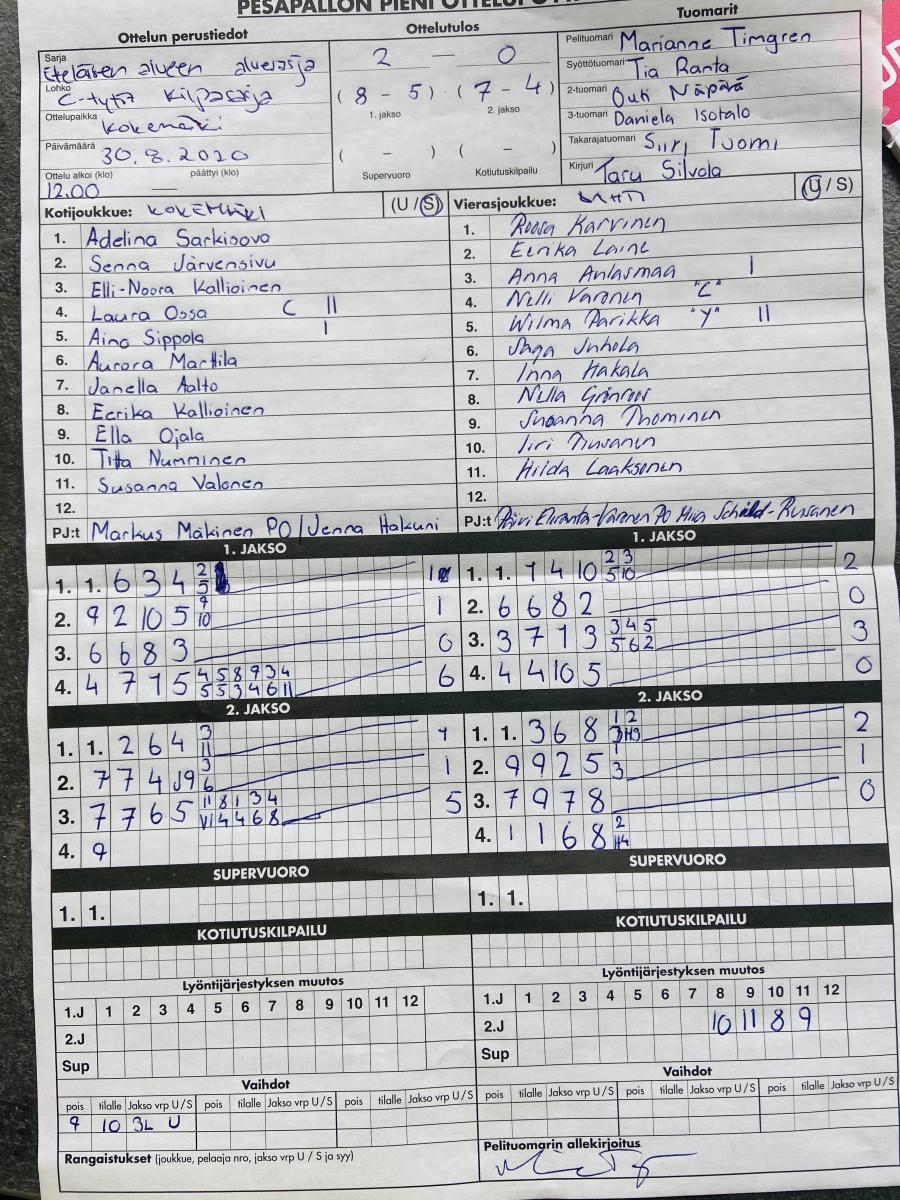 PESÄPALLON PIENI
Ottelun perustiedot
Sarja
Eteläisen alueen aluesarja
Lohko
C-tytöt kilpasarja
Ottelupaikka
Kokemäki
Päivämäärä
30.8.2020
Ottelu alkoi (klo) päättyi (klo)
12.00 —
Ottelutulos
2 — 0
(8 - 5) (7 - 4)
1. jakso 2. jakso
( - ) ( - )
Supervuoro Kotiutuskilpailu
Tuomarit
Pelituomari Marianne Timgren
Syöttötuomari Tia Ranta
2-tuomari Outi Näpärä
3-tuomari Daniela Isotalo
Takarajatuomari Siiri Tuomi
Kirjuri Taru Silvola
Kotijoukkue: KOKEMÄKI (U / S)
1. Adelina Sarkisova
2. Senna Järvensivu
3. Elli-Noora Kallioinen
4. Laura Ossa C II
5. Aino Sippola I
6. Aurora Marttila
7. Janella Aalto
8. Eerika Kallioinen
9. Ella Ojala
10. Titta Numminen
11. Susanna Valonen
12.
PJ:t Markus Mäkinen PO / Jenna Hakuni
Vierasjoukkue: (U / S)
1. Roosa Karvinen
2. Eerika Laine
3. Anna Anlasmaa I
4. Nelli Varonen "C"
5. Wilma Parikka "Y" II
6. Saga Juhola
7. Inna Hakala
8. Nella Grönroos
9. Susanna Thominen
10. Iiri Rusanen
11. Hilda Laaksonen
12.
PJ:t Varonen PO Miia Rusanen
1. JAKSO
1. 1. 6 3 4 2/5 1
2. 9 2 10 5 9/10 1
3. 6 6 8 3 0
4. 4 7 1 5 4/5 5/5 8/3 9/4 3/6 4/11 6
2. JAKSO
1. 1. 2 6 4 3/11 1
2. 7 7 4 J9 3/6 1
3. 7 7 6 5 11/V1 8/4 1/4 3/6 4/8 5
4. 9
SUPERVUORO
1. 1.
KOTIUTUSKILPAILU
Lyöntijärjestyksen muutos
1.J 1 2 3 4 5 6 7 8 9 10 11 12
2.J
Sup
Vaihdot
pois tilalle Jakso vrp U/S pois tilalle Jakso vrp U/S pois tilalle Jakso vrp U/S
9 10 3L U
Rangaistukset (joukkue, pelaaja nro, jakso vrp U / S ja syy)
1. JAKSO
1. 1. 7 4 10 2/5 3/10 2
2. 6 6 8 2 0
3. 3 7 1 3 3/5 4/6 5/2 3
4. 4 4 10 5 0
2. JAKSO
1. 1. 3 6 8 1/3 2/H3 2
2. 9 9 2 5 1/3 1
3. 7 9 7 8 0
4. 1 1 6 8 2/H4
SUPERVUORO
1. 1.
KOTIUTUSKILPAILU
Lyöntijärjestyksen muutos
1.J 1 2 3 4 5 6 7 8 9 10 11 12
2.J 10 11 8 9
Sup
Vaihdot
pois tilalle Jakso vrp U/S pois tilalle Jakso vrp U/S pois tilalle Jakso vrp U/S
Pelituomarin allekirjoitus